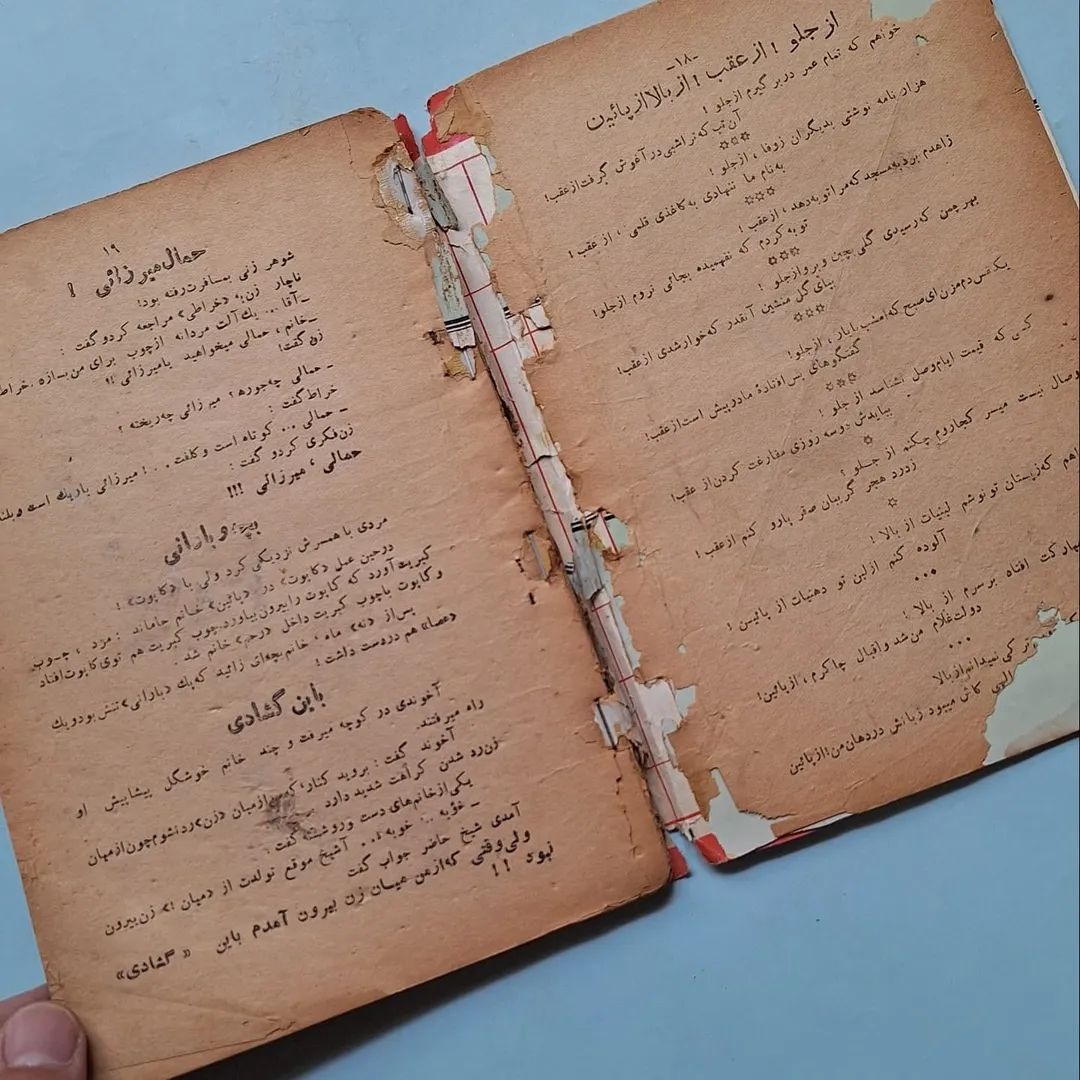 -۱۸-
از جلو ! از عقب ! از بالا از پائین
خواهم که تمام عمر دربر گیرم ازجلو !
آن تب که تراشبی در آغوش گرفت از عقب !
هزار نامه نوشتی بدیگران زوفا ، ازجلو !
به نام ما ننهادی به کاغذی قلمی ، از عقب !
زاهدم برد به مسجد که مرا توبه دهد ، از عقب !
توبه کردم که نفهمیده بجائی نروم ازجلو !
بهر چمن که رسیدی گلی بچین و برو ازجلو !
بپای گل منشین آنقدر که خوار شدی از عقب !
یک نفس دم مزن ای صبح که امشب با یار ، ازجلو !
گفتگوهای پس افتادهٔ ما در پیش است از عقب !
کسی که قیمت ایام وصل نشناسد از جلو !
ببایدش دو سه روزی مفارقت کردن از عقب !
وصال نیست میسر کجا روم چکنم از جلو !
زدرد هجر گریبان صقر پارو کنم از عقب !
که زپستان تو نوشم لبنیات از بالا !
آلوده کنم ازلبن تو دهنیات از پائین !
افتاد برسرم از بالا !
دولت غلام من شد و اقبال چاکرم ، از پائین !
کی نمیدانم از بالا
کاش میبود زبانش در دهان من ! از پائین
۱۹
حمال میرزائی !
شوهر زنی بمسافرت رفته بود !
ناچار زن به «خراطی» مراجعه کرد و گفت :
ـ آقا ... یك آلت مردانه از چوب برای من بسازه ، خراط
ـ خانم ، حمالی میخواهید یا میرزائی ؟!
زن گفت :
ـ حمالی چه جوره ؟ میرزائی چه ریخته ؟
خراط گفت :
ـ حمالی ... کوتاه است و کلفت .. ! میرزائی باریك است و بلند
زن فکری کرد و گفت :
حمالی ، میرزائی !!!
بچه و بارانی
مردی با همسرش نزدیکی کرد ولی با «کاپوت» !
درحین عمل «کاپوت» در «پائین» خانم جاماند : مرد ، چوب
کبریت آورد که کاپوت را بیرون بیاورد . چوب کبریت هم توی کاپوت افتاد
و کاپوت باچوب کبریت داخل «رحم» خانم شد .
پس از «نه» ماه ، خانم بچه‌ای زائید که یك «بارانی» تنش بود و یك
«عصا» هم در دست داشت !
باین گشادی
آخوندی در کوچه میرفت و چند خانم خوشگل پیشاپیش او
راه میرفتند .
آخوند گفت : بروید کنار ، که من ازمیان «زن» رد نشوم چون ازمیان
زن رد شدن کراهت شدید دارد .
یکی از خانم‌های دست و روشسته گفت :
ـ خوبه .. خوبه .. آشیخ موقع تولدت از «میان !» زن بیرون
آمدی شیخ حاضر جواب گفت
ولی وقتی که از من میان زن بیرون آمدم باین «گشادی»
نبود !!